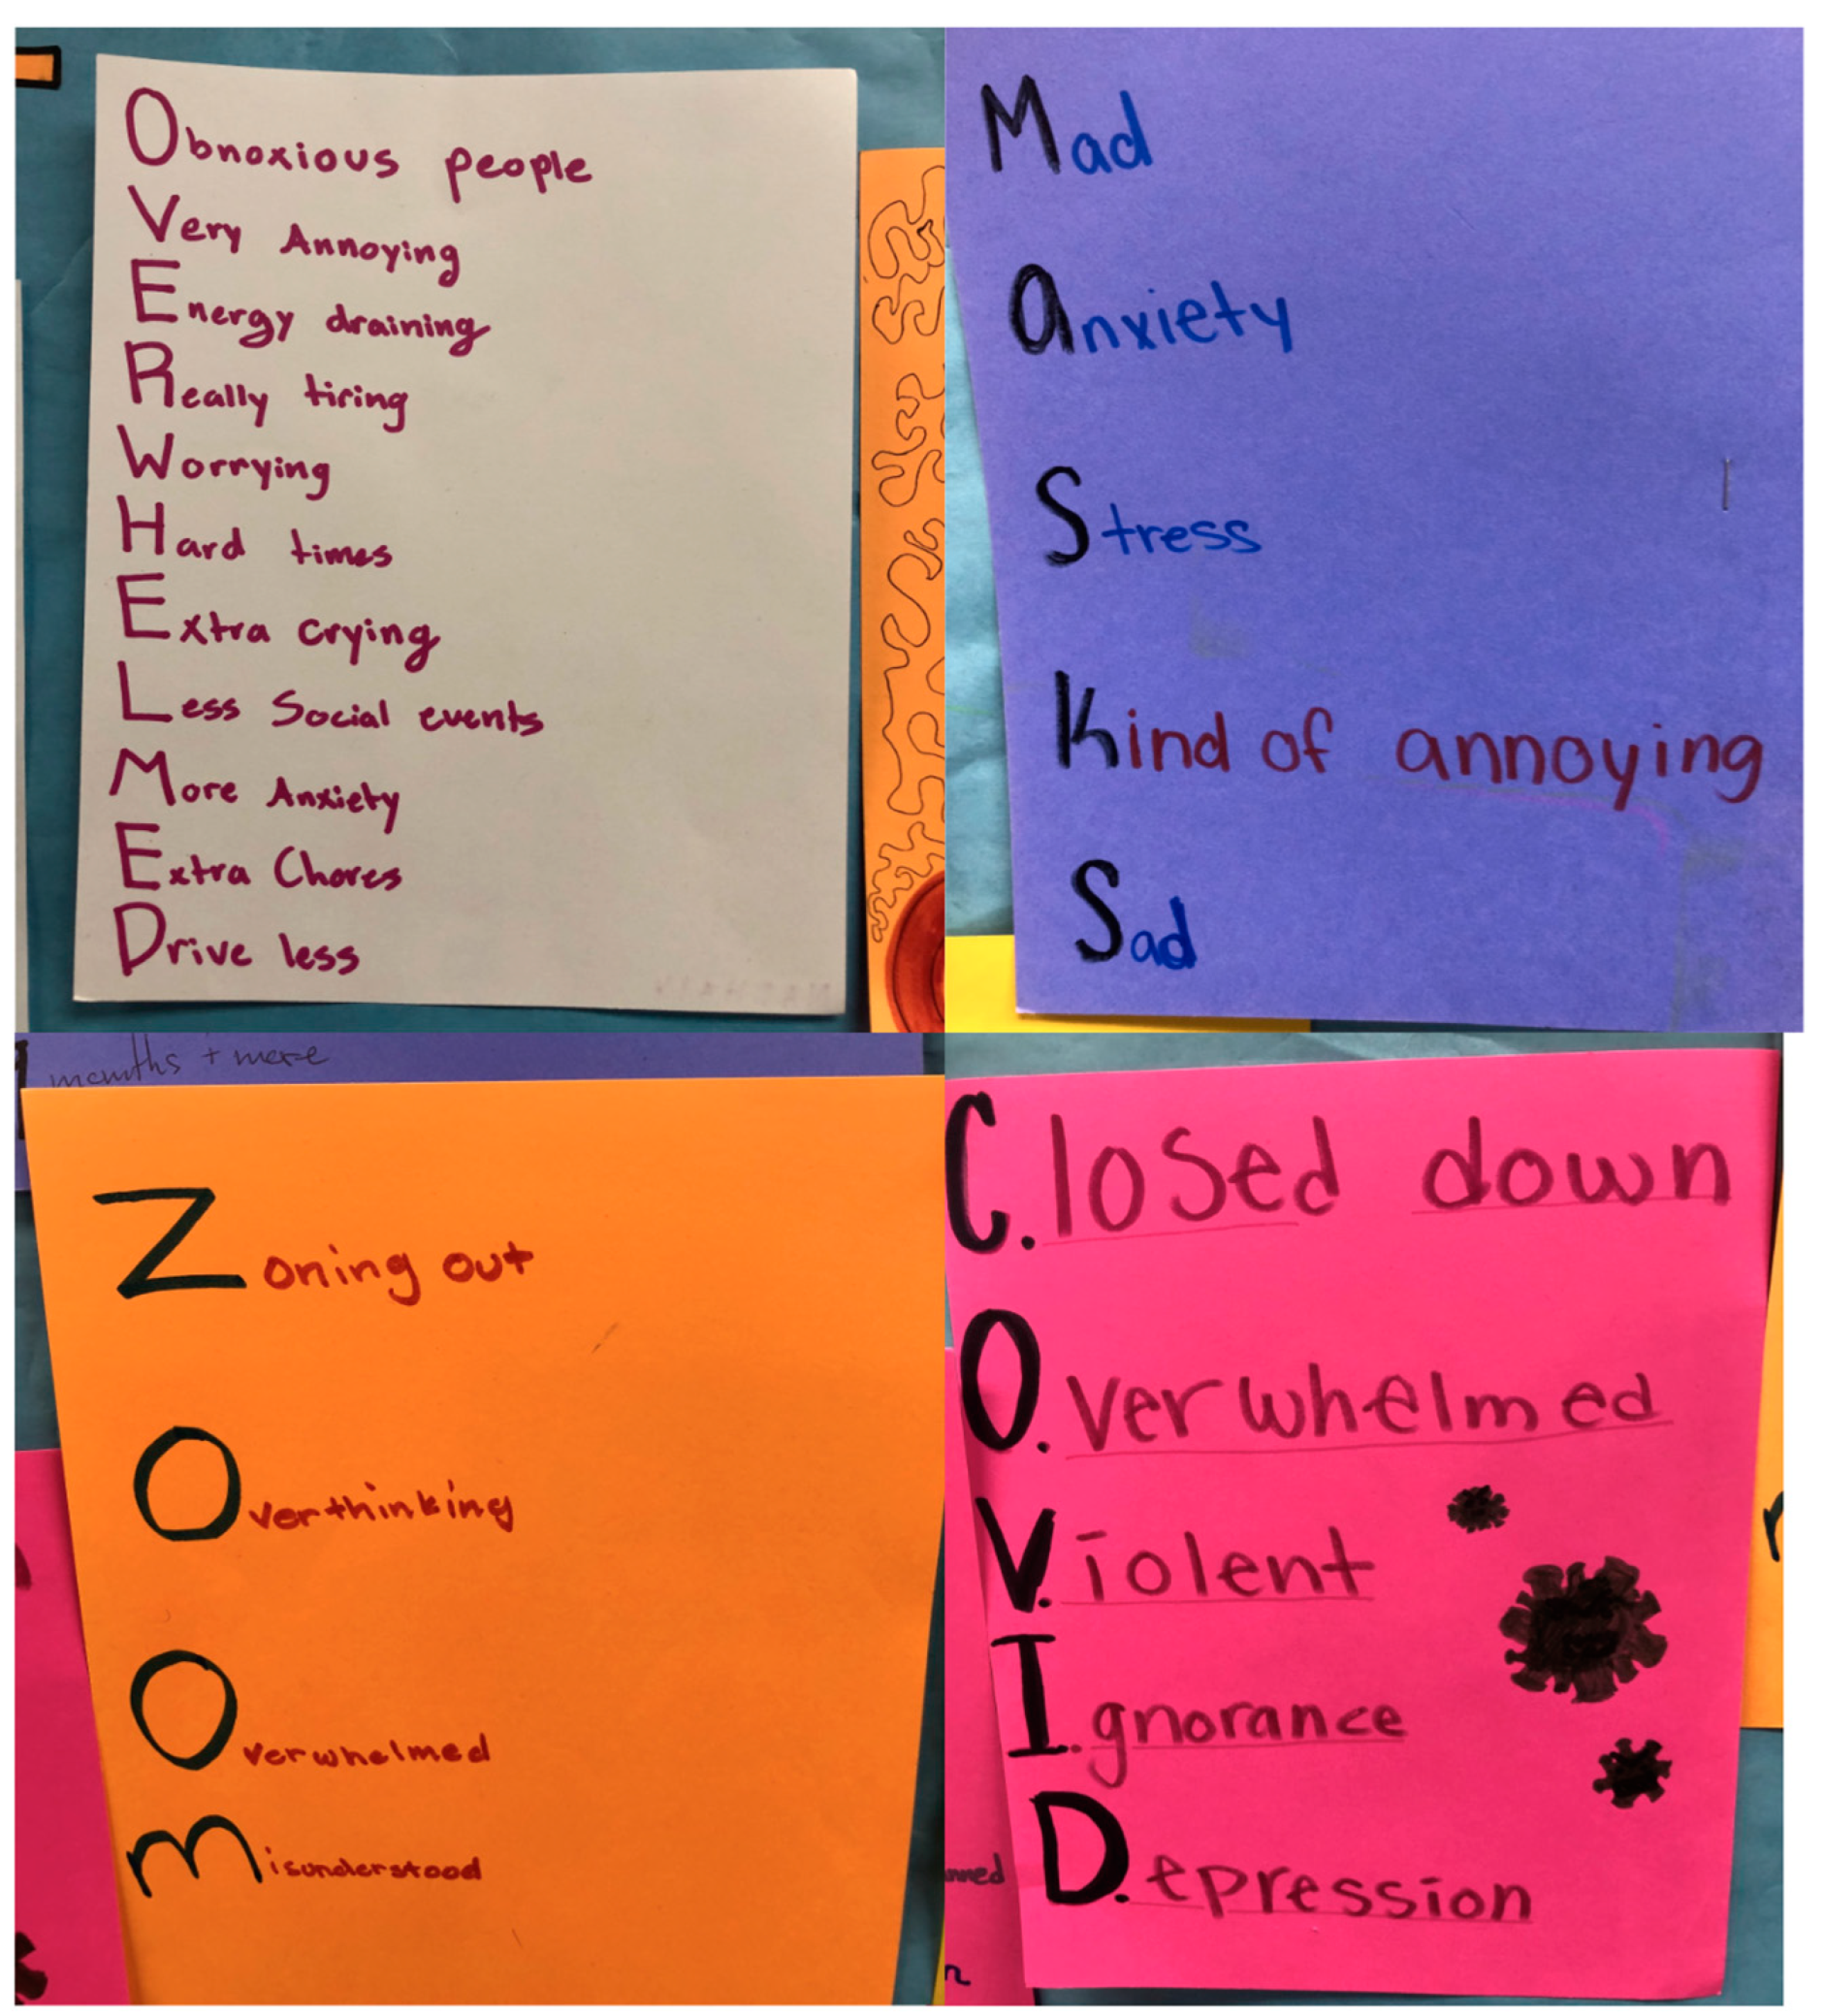 Obnoxious people
Very Annoying
Energy draining
Really tiring
Worrying
Hard times
Extra crying
Less Social events
More Anxiety
Extra Chores
Drive less
Mad
Anxiety
Stress
Kind of annoying
Sad
months + more
Zoning out
Overthinking
Overwhelmed
Misunderstood
C.losed down
O.verwhelmed
V.iolent
I.gnorance
D.epression